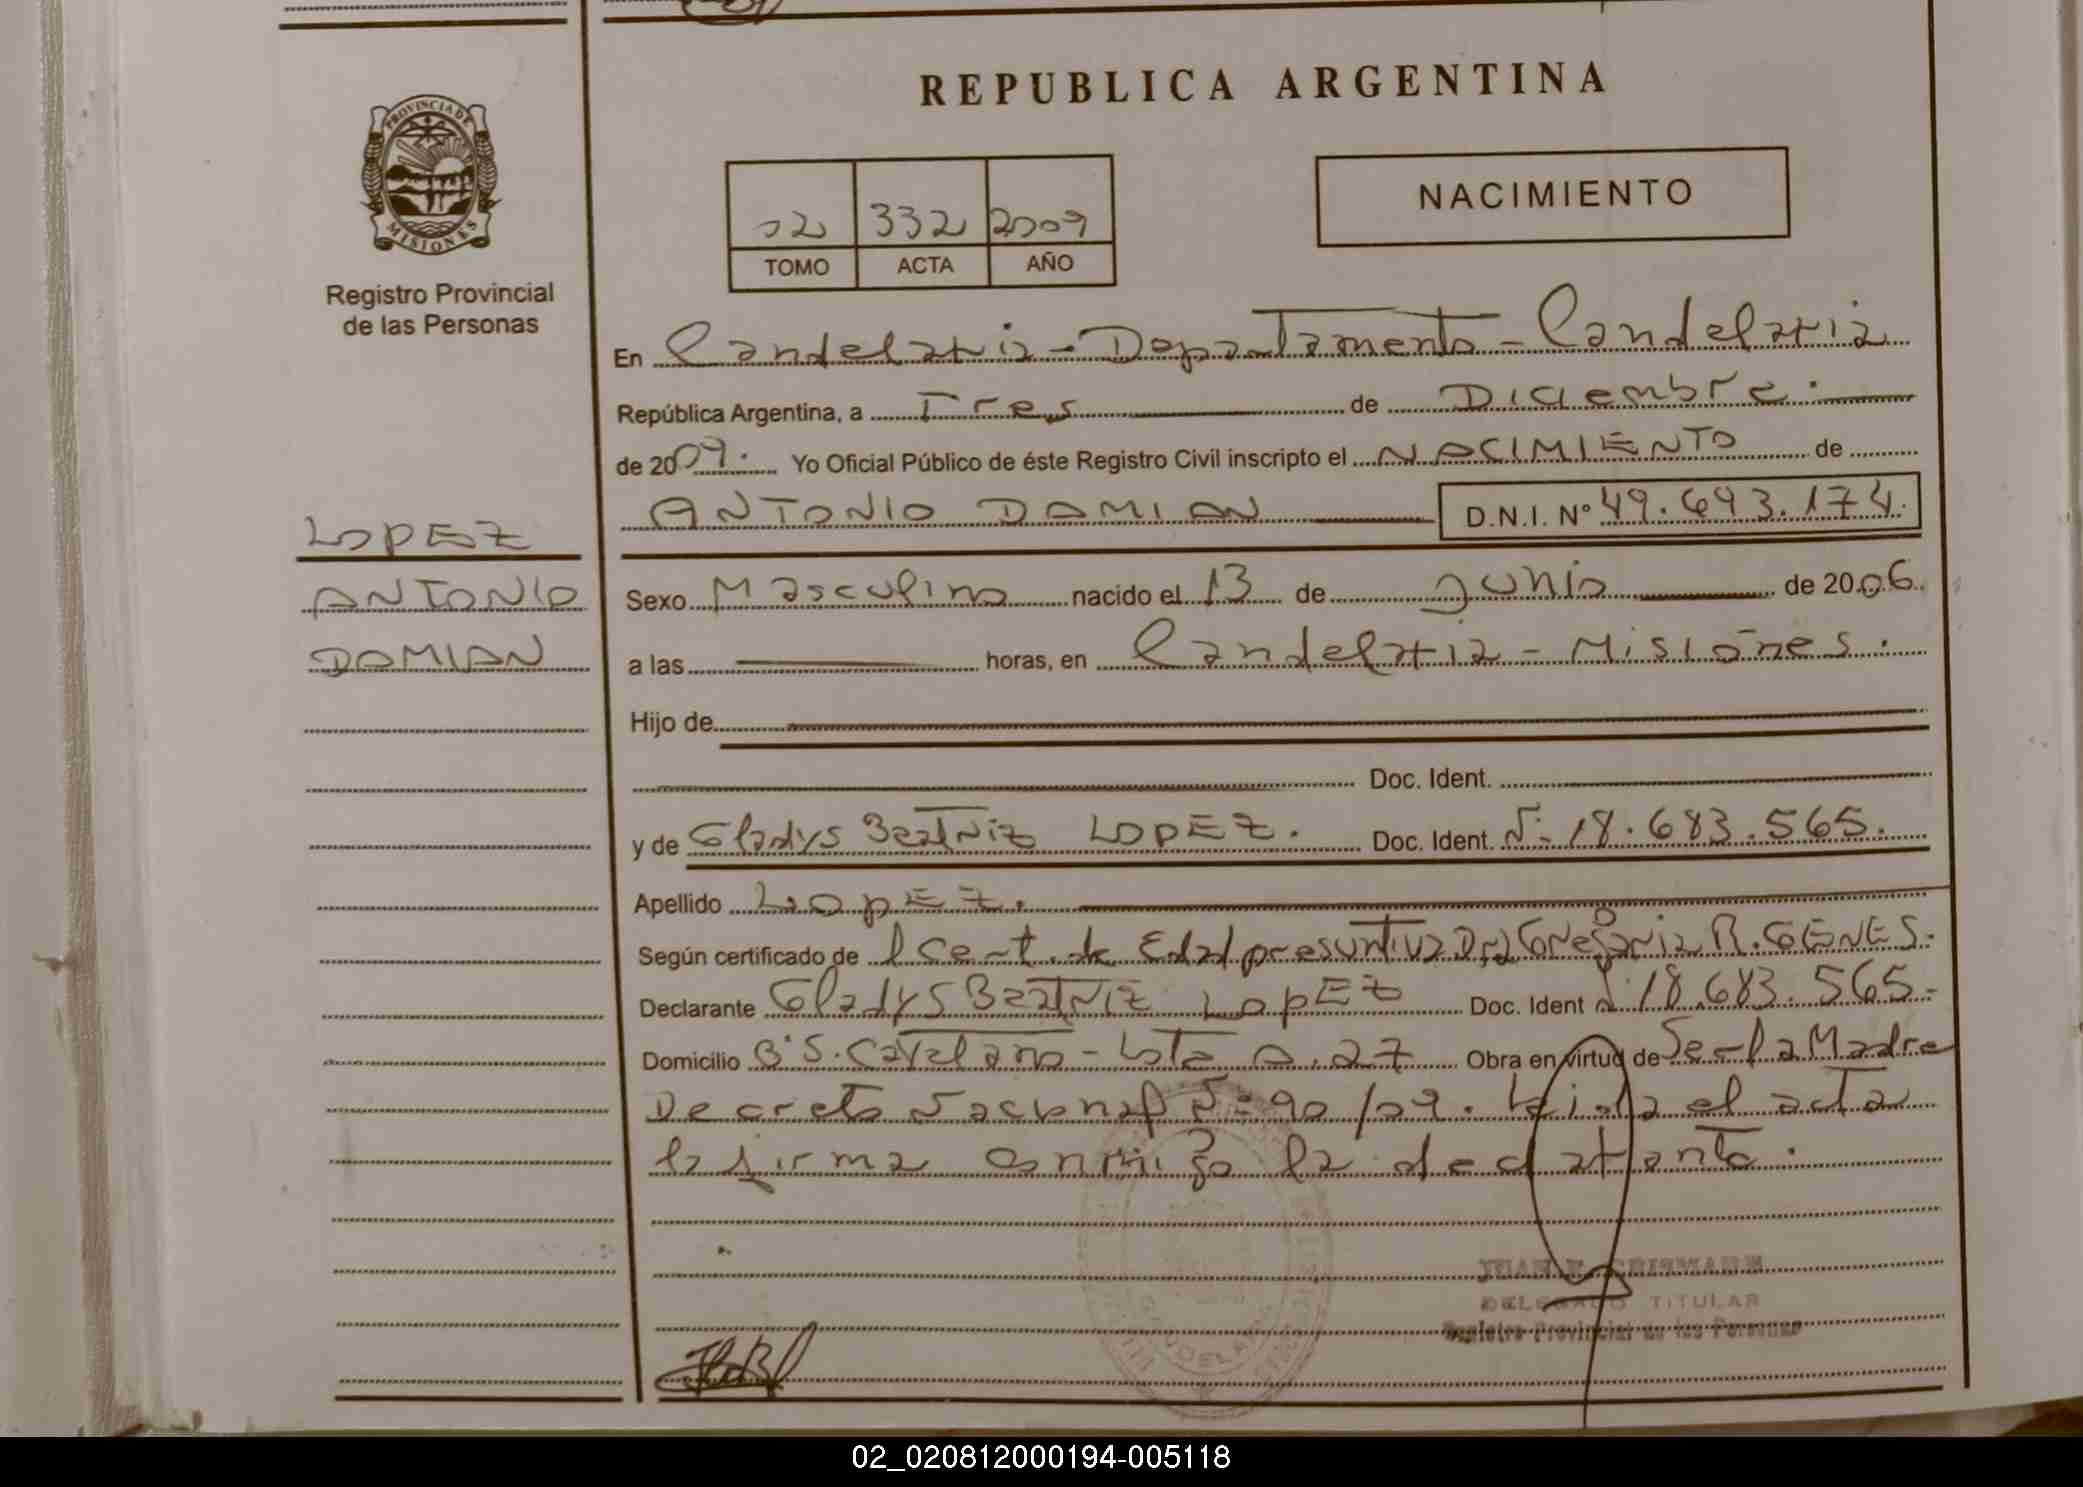 REPUBLICA ARGENTINA
PROVINCIA DE
MISIONES
Registro Provincial
de las Personas
02 332 2009
TOMO ACTA AÑO
NACIMIENTO
En Candelaria - Departamento - Candelaria
República Argentina, a Tres de Diciembre.
de 2009. Yo Oficial Público de éste Registro Civil inscripto el NACIMIENTO de
ANTONIO DAMIAN D.N.I. N° 49.693.174.
LOPEZ
ANTONIO
DAMIAN
Sexo Masculino nacido el 13 de Junio de 2006.
a las horas, en Candelaria - Misiones.
Hijo de
Doc. Ident.
y de Gladys Beatriz LOPEZ. Doc. Ident. N° 18.683.565.
Apellido LOPEZ.
Según certificado de 1 Cert. de Edad presuntiva Dra Gregoria R. GENES.
Declarante Gladys Beatriz LOPEZ Doc. Ident N° 18.683.565.-
Domicilio B° S. Cayetano - Lote A. 27 Obra en virtud de Ser la Madre
Decreto Nacional N° 90/09. Leida el acta
la firma conmigo la declarante.
DELEGADO TITULAR
Registro Provincial de las Personas
02_020812000194-005118